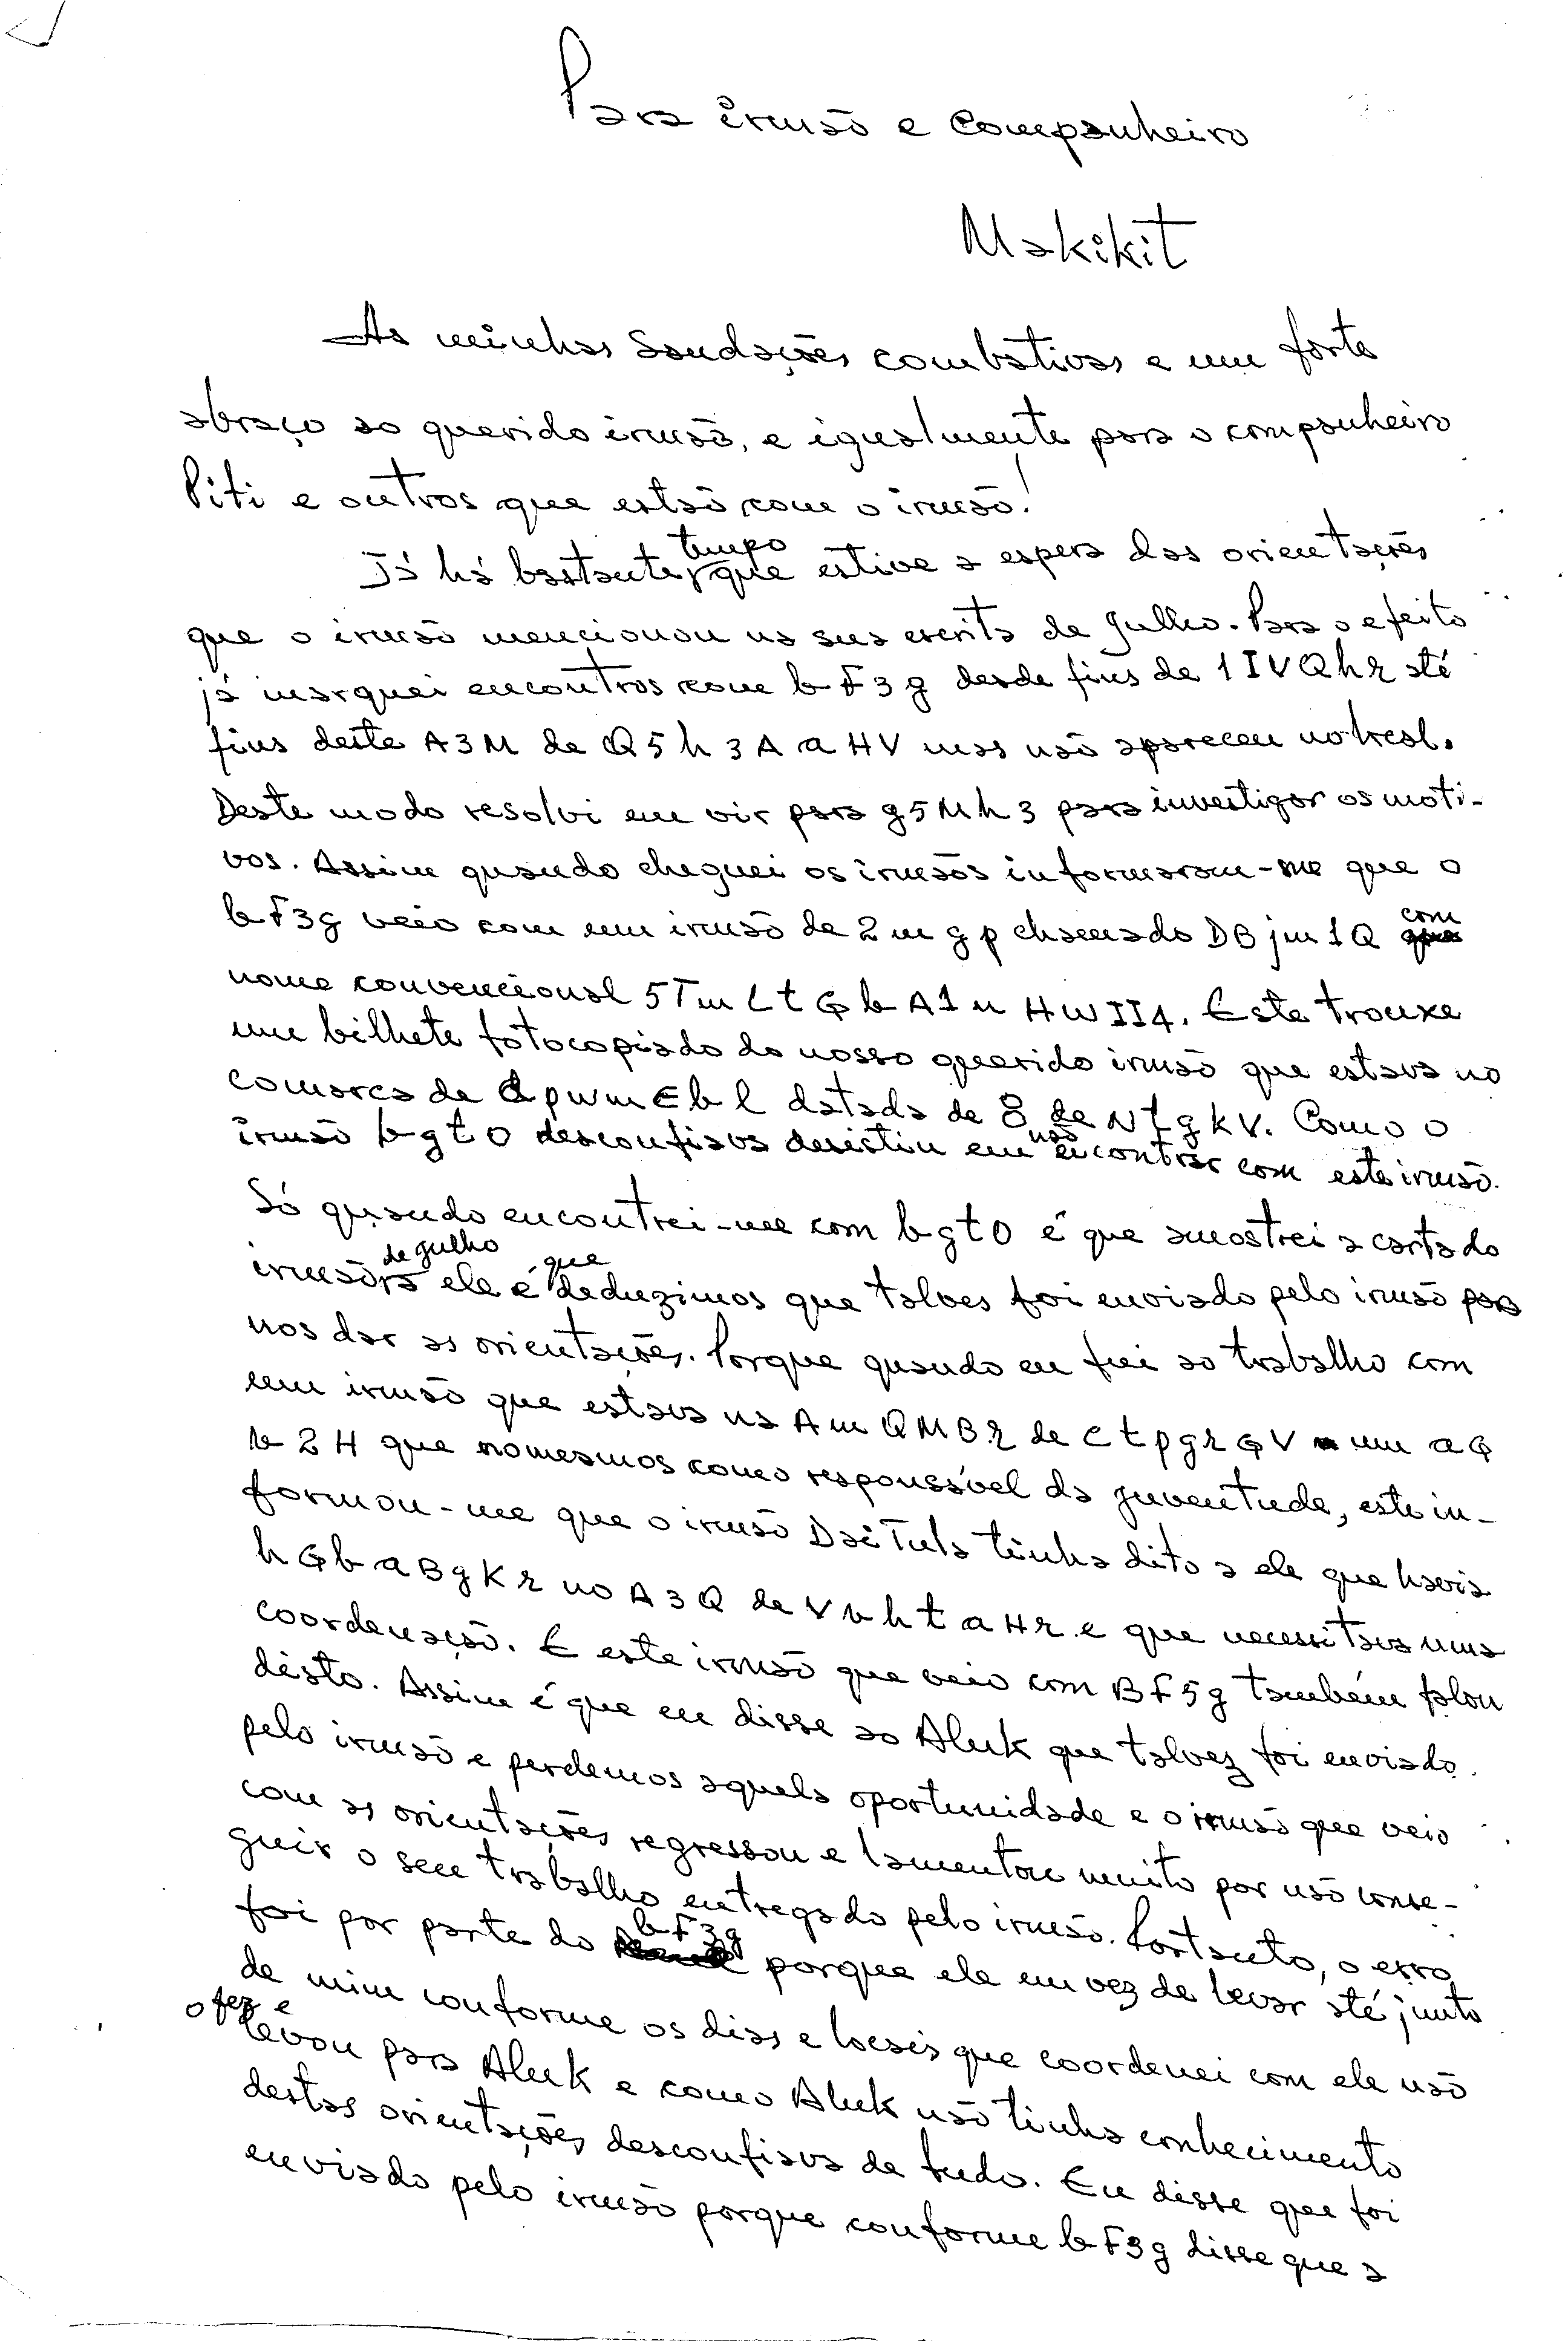 Para irmão e companheiro
Makikit
As minhas saudações combativas e um forte
abraço ao querido irmão, e igualmente para o companheiro
Piti e outros que estão com o irmão!
Já há bastante tempo que estive a espera das orientações
que o irmão mencionou na sua escrita de Julho. Para o efeito
já marquei encontros com b F 3 g desde fins de 1 I V Q h 2 até
fins deste A 3 M de Q 5 h 3 A a H V mas não apareceu no local.
Deste modo resolvi em vir para g 5 M h 3 para investigar os moti-
vos. Assim quando cheguei os irmãos informaram-me que o
b F 3 g veio com um irmão de 2 m g p chamado D B j m 1 Q com
nome convencional 5 T m L t G b A 1 n H W I I 4. Este trouxe
um bilhete fotocopiado do nosso querido irmão que estava no
comarca de Q p w m E b l datada de 8 de N t g k V. Como o
irmão b g t O desconfiava desistiu em não encontrar com este irmão.
Só quando encontrei-me com b g t O é que amostrei a carta do
irmão de Julho ele é que deduzimos que talves foi enviado pelo irmão para
nos dar as orientações. Porque quando eu fui ao trabalho com
um irmão que estava na A m Q M B 2 de C t p g 2 G V um a G
b 2 H que nomeamos como responsável da juventude, este in-
formou-me que o irmão Dai Tula tinha dito a ele que havia
h G b a B g K 2 no A 3 Q de V b h t a H 2 e que necessitava uma
coordenação. E este irmão que veio com B F 5 g também falou
disto. Assim é que eu disse ao Aluk que talvez foi enviado
pelo irmão e perdemos aquela oportunidade e o irmão que veio
com as orientações regressou e lamentou muito por não conse-
guir o seu trabalho entregado pelo irmão. Portanto, o erro
foi por parte do b F 3 g porque ele em vez de levar até junto
de mim conforme os dias e locais que coordenei com ele não
o fez e levou para Aluk e como Aluk não tinha conhecimento
destas orientações desconfiava de tudo. Eu disse que foi
enviado pelo irmão porque conforme b F 3 g disse que a